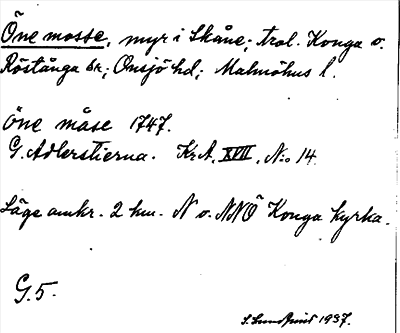 Öne mosse, myr i Skåne; trol. Konga o.
Röstånga sr; Onsjö hd; Malmöhus l.
Öne måse 1747.
G. Adlerstierna. Kr.A. XVIII, N:o 14.
Läge omkr. 2 km. N o. NNÖ Konga kyrka.
G. 5.
S. Lundquist 1937.